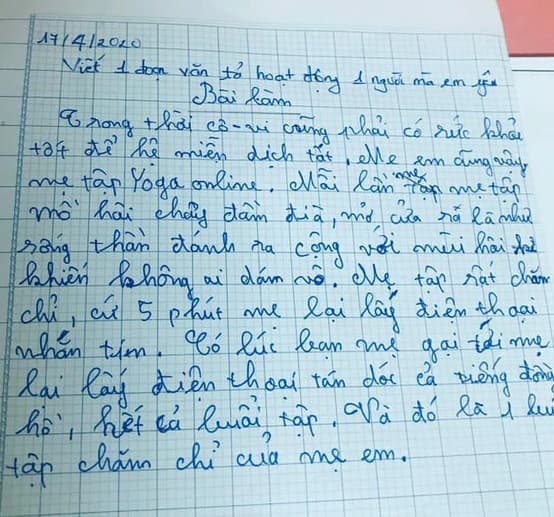 17/4/2020
Viết 1 đoạn văn tả hoạt động 1 người mà em yêu
Bài làm
Trong thời cô-vi cũng phải có sức khỏe
tốt để hệ miễn dịch tốt. Mẹ em cũng vậy
mẹ tập Yoga online. Mỗi lần mẹ tập mẹ tập
mồ hôi chảy đầm đìa, mở cửa ra là như
sóng thần đánh ra cộng với mùi hôi
khiến không ai dám vô. Mẹ tập rất chăm
chỉ, cứ 5 phút mẹ lại lấy điện thoại
nhắn tin. Có lúc bạn mẹ gọi tới mẹ
lại lấy điện thoại tán dóc cả tiếng đồng
hồ, hết cả buổi tập. Và đó là 1
tập chăm chỉ của mẹ em.